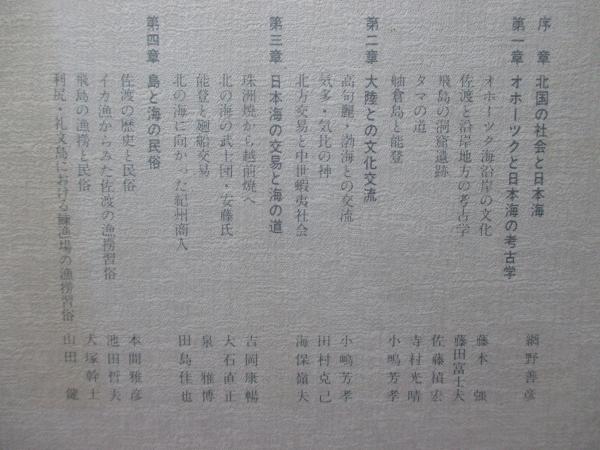 序章 北国の社会と日本海 網野善彦
第一章 オホーツクと日本海の考古学
オホーツク海沿岸の文化 藤本強
佐渡と沿岸地方の考古学 藤田富士夫
飛島の洞窟遺跡 佐藤禎宏
タマの道 寺村光晴
舳倉島と能登 小嶋芳孝
第二章 大陸との文化交流
高句麗・渤海との交流 小嶋芳孝
気多・気比の神 田村克己
北方交易と中世蝦夷社会 海保嶺夫
第三章 日本海の交易と海の道
珠洲焼から越前焼へ 吉岡康暢
北の海の武士団・安藤氏 大石直正
能登と廻船交易 泉雅博
北の海に向かった紀州商人 田島佳也
第四章 島と海の民俗
佐渡の歴史と民俗 本間雅彦
イカ漁からみた佐渡の漁撈習俗 池田哲夫
飛島の漁撈と民俗 犬塚幹士
利尻・礼文島における鰊漁場の漁撈習俗 山田健